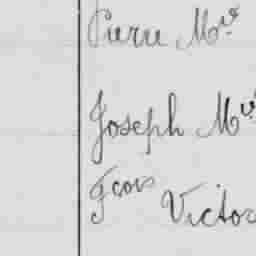 Pierre Mie
Joseph Mie
Fcois Victor